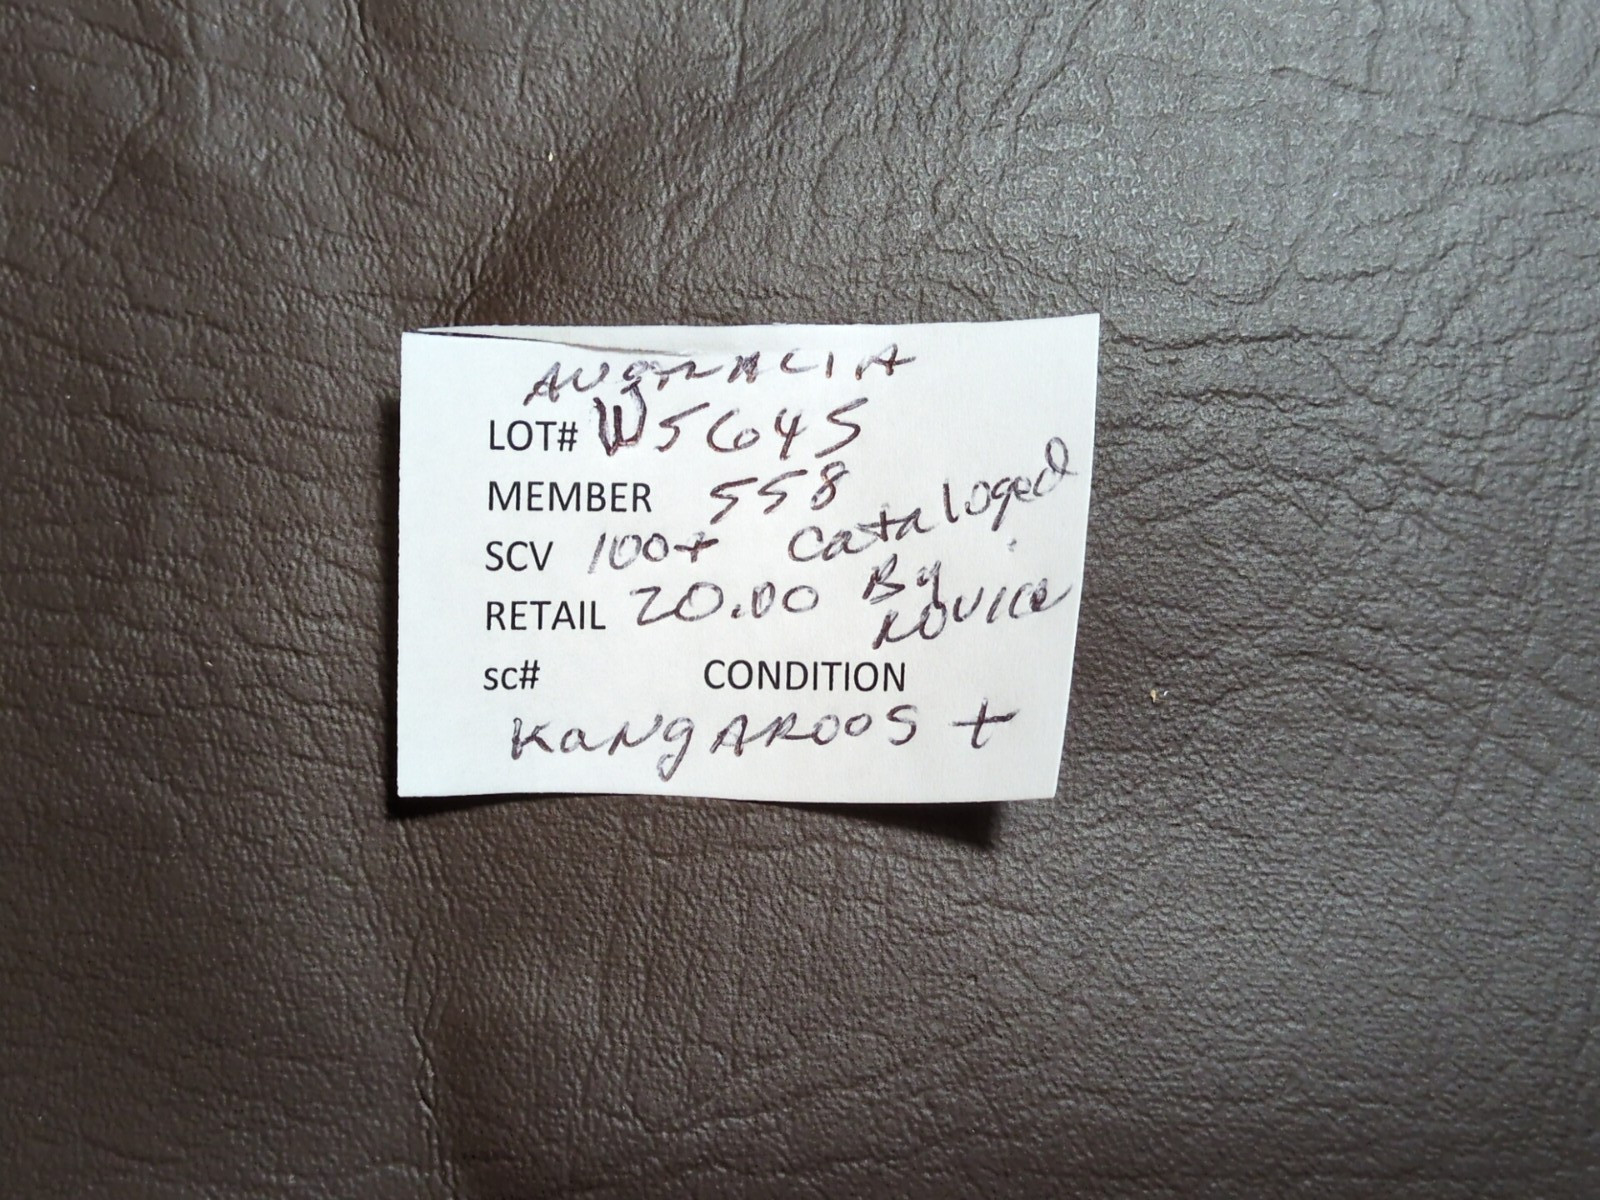 AUSTRALIA
LOT# W5645
MEMBER 558
SCV 100+ cataloged
RETAIL 20.00 By
NOVICE
sc# CONDITION
KANgAROOS +